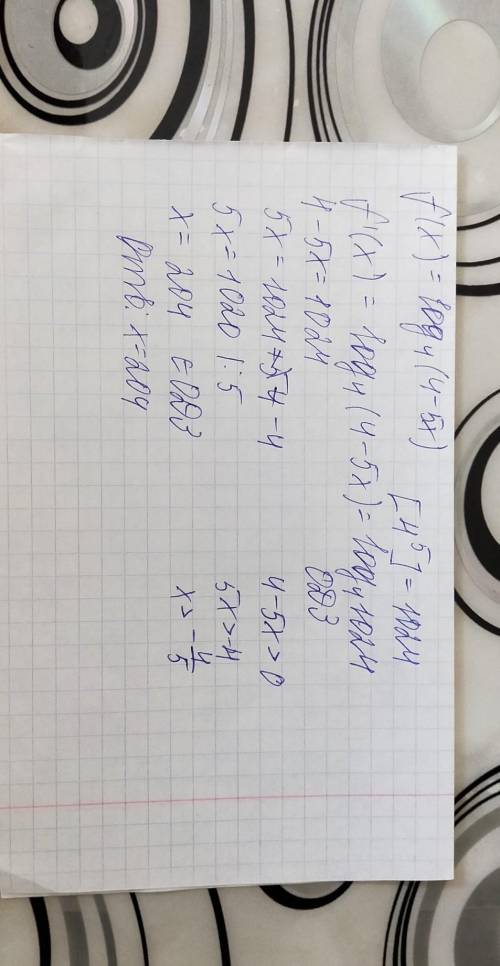 f'(x) = log₄(4-5x) [4⁵] = 1024
f'(x) = log₄(4-5x) = log₄1024
4-5x = 1024 ОДЗ
5x = 1024 -4 4-5x>0
5x = 1020 |:5 5x>-4
x = 204 ∈ ОДЗ x> -4/5
Ответ: x=204